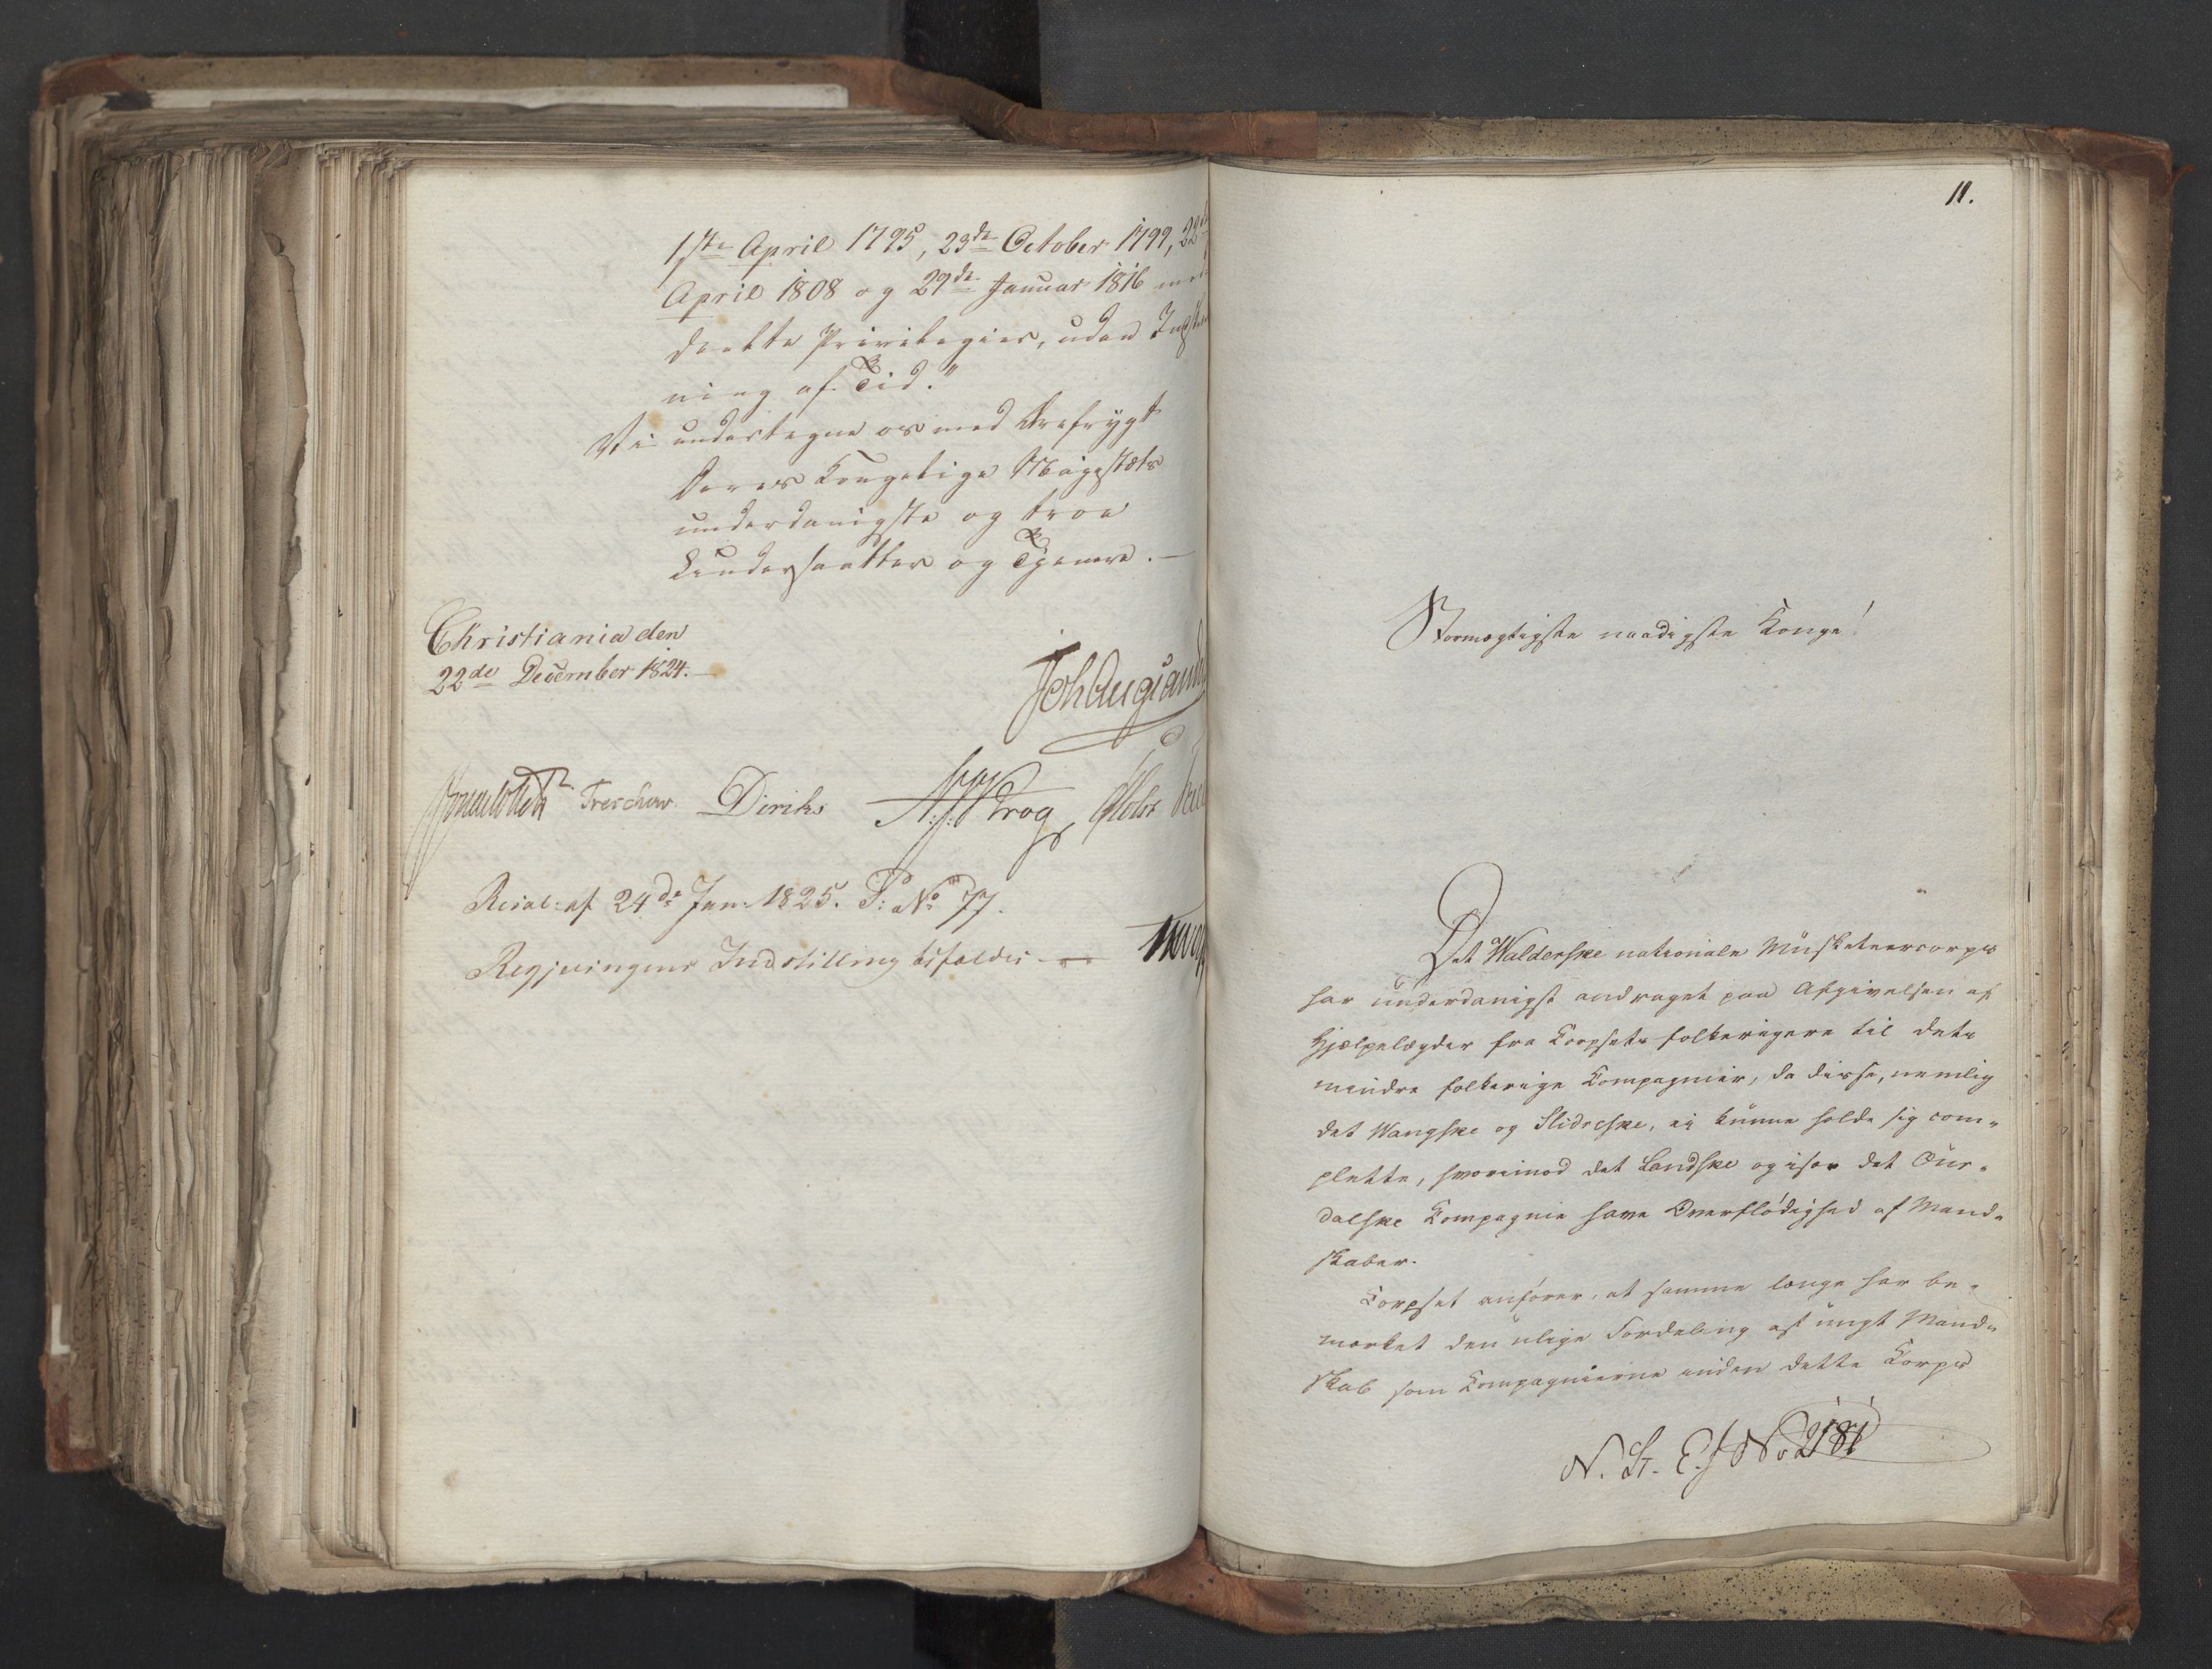 1ste April 1795, 23de October 1799, 22de
April 1808 og 29de Januar 1816 med
deelte Privilegier, uden
ning af Tid."
Vi undertegne os med Ærefrygt
Deres Kongelige Majestæts
underdanigste og troe
Undersaatter og Tjenere.—
Christiania den
22de December 1824.—
Treschow. Diriks Krog
Resol: af 24de Jan: 1825. P: No 77.
Regjeringens Indstilling bifaldes —
11.
Stormægtigste naadigste Konge!
Det Walderske nationale Musketeercorps
har underdanigst andraget paa Afgivelsen af
Hjælpelægder fra Corpsets folkerigere til dets
mindre folkerige Compagnier, da disse, nemlig
det Wangske og Slidreske, ei kunne holde sig com-
plette, hvorimod det Landske og især det Öur-
dalske Compagnie have Overflødighed af Mand-
skaber.
Corpset anfører, at samme længe har be-
mærket den ulige Fordeling af ungt Mand-
skab som Compagnierne inden dette Corps